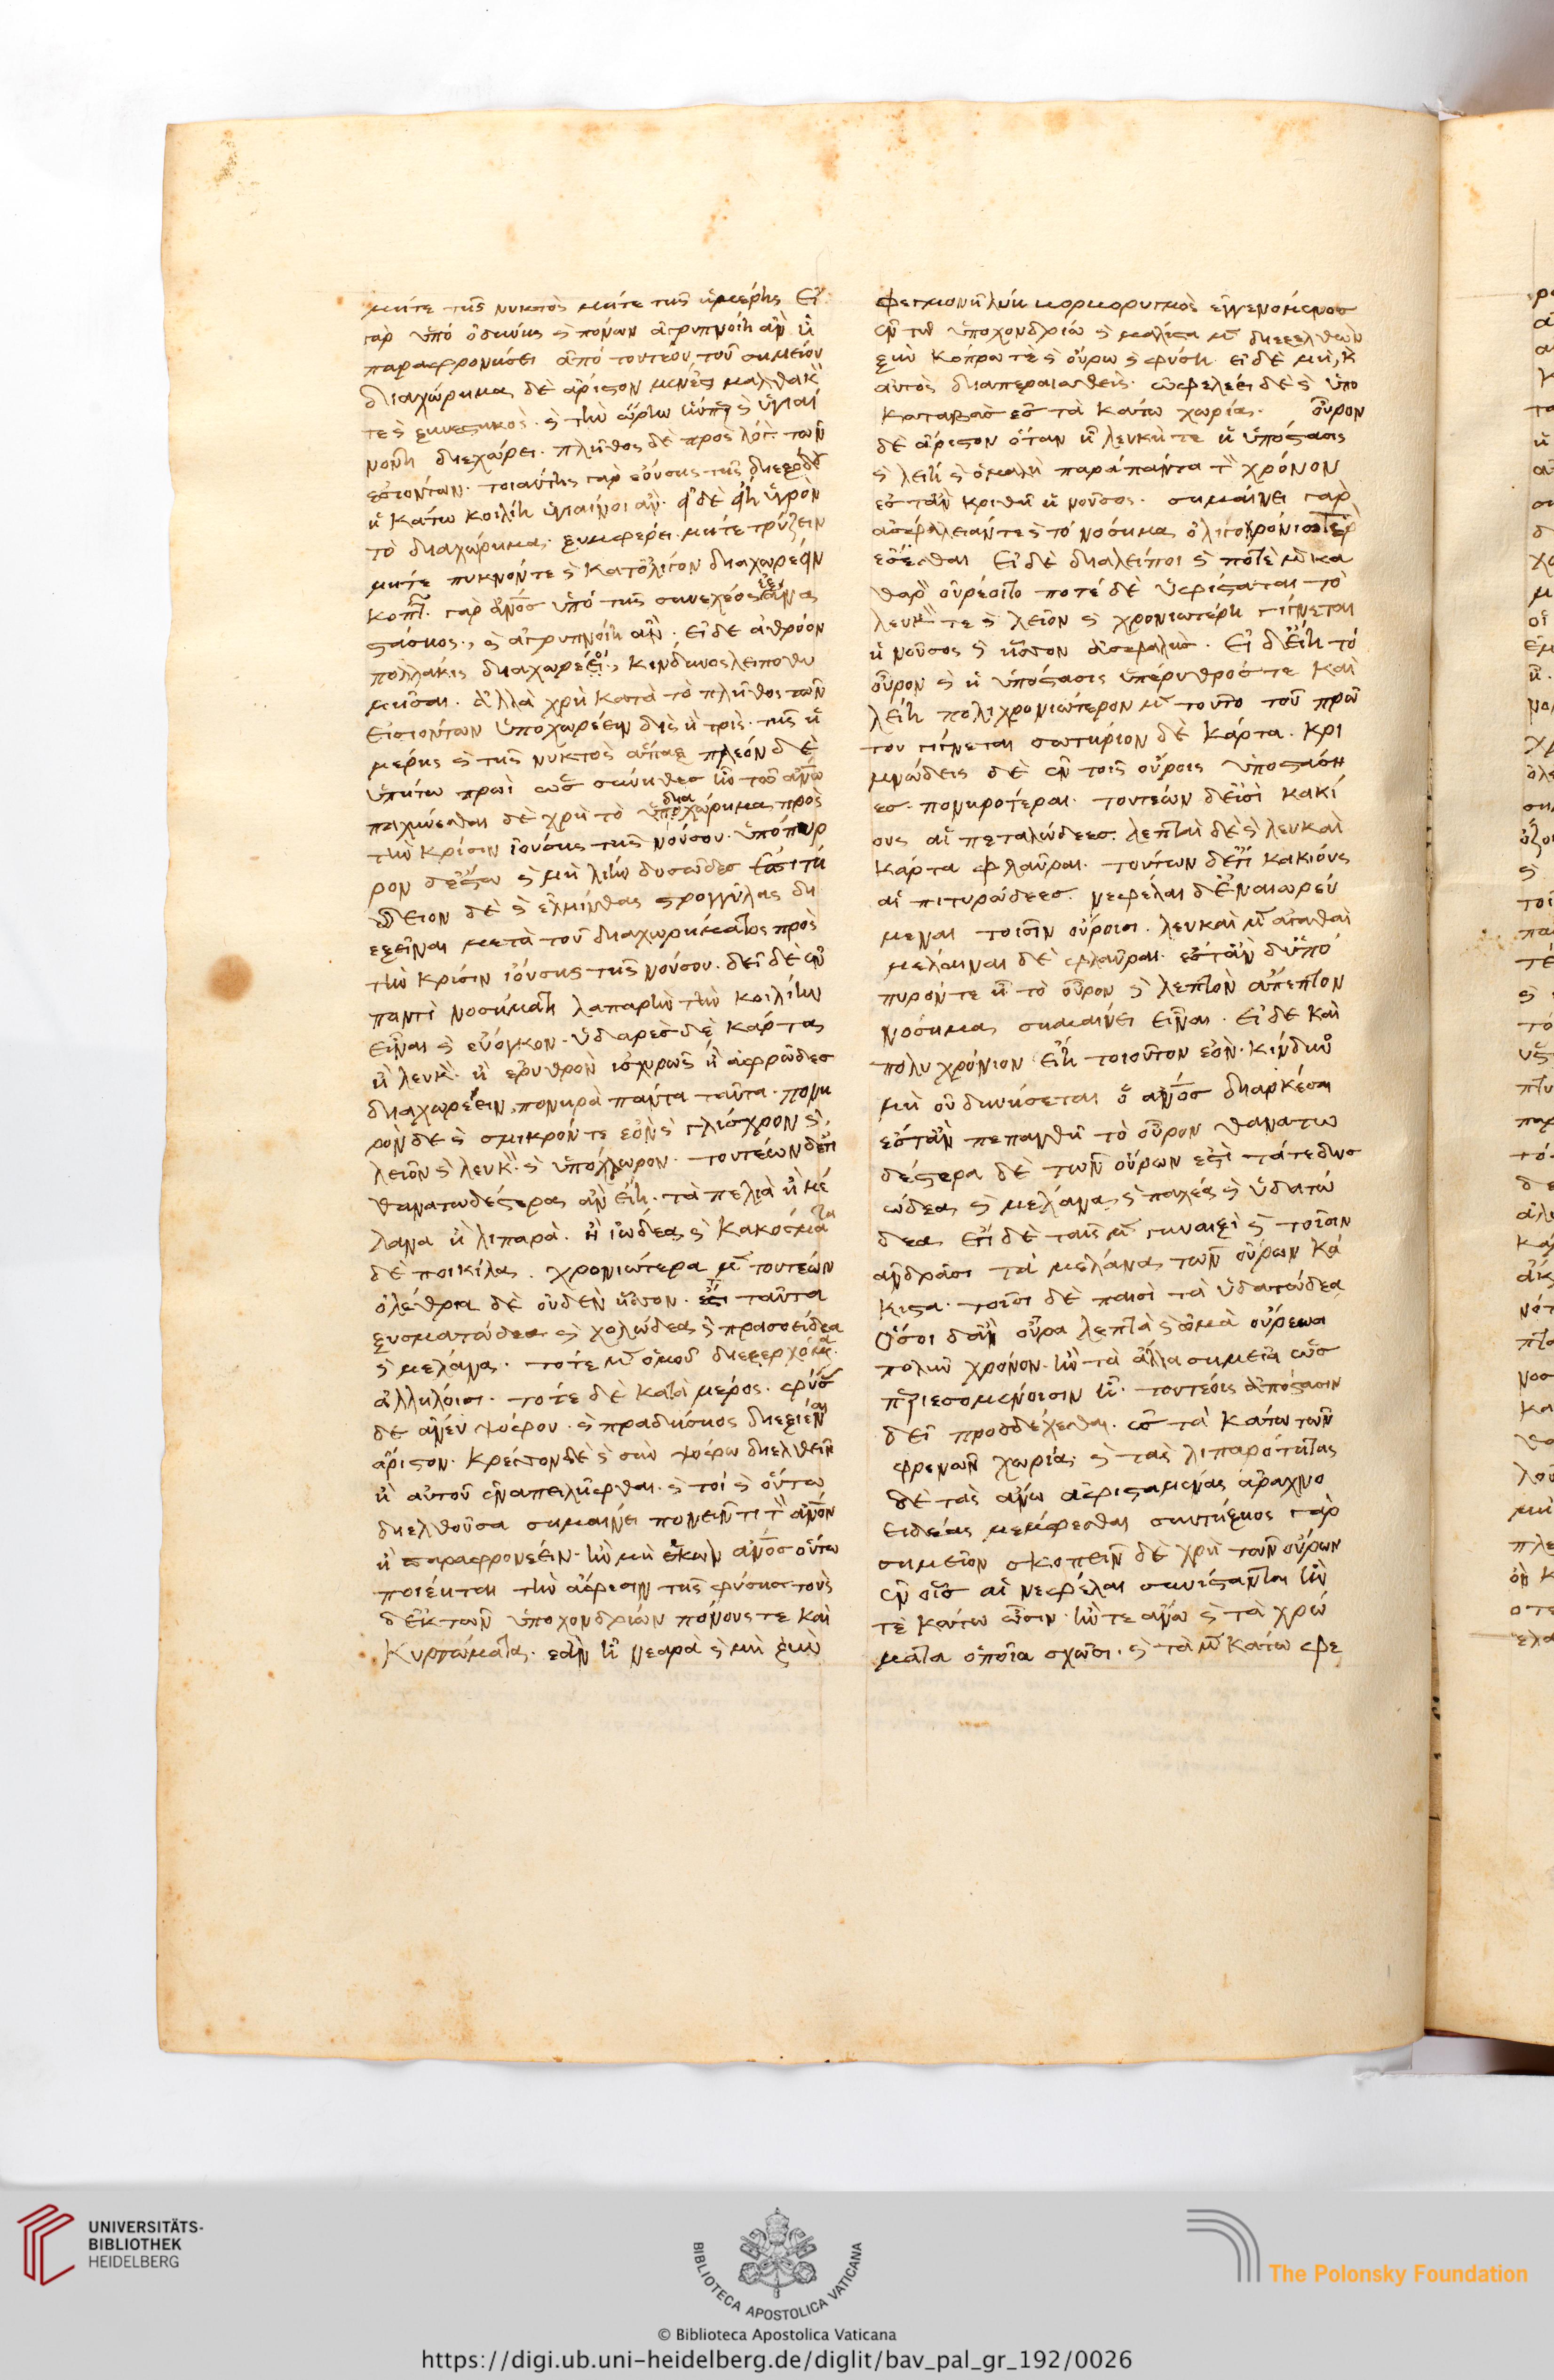 μήτε τῆς νυκτὸς μήτε τῆς ἡμέρης Εἰ
γὰρ ὑπό ὀδύνης ϗ πόνων ἀγρυπνοίη ἂν ἢ
παραφρονήσει ἀπό τουτέου τοῦ σημείου
διαχώρημα δὲ ἄριστον μέν ἐστι μαλθακὸν
τε ϗ ξυνεστηκὸς. ϗ τὴν ὥρην ἥνπερ ϗ ὑγιαί
νοντι διεχώρει. πλῆθος δὲ πρὸς λόγ. τῶν
εσιόντων. τοιαύτης γὰρ ἐούσης τῆς διεξόδου
ἡ κάτω κοιλίη ὑγιαίνοι ἂν. εἰ δὲ εἴη ὑγρὸν
τὸ διαχώρημα. ξυμφέρει μήτε τρύζειν
μήτε πυκνόν τε ϗ κατολίγον διαχωρέειν
γὰρ ἄνος ὑπό τῆς συνεχέος ἐξανα
στάσιος, ϗ ἀγρυπνοίη ἂν. εἰ δὲ ἀθρόον
πολλάκις διαχωρέοι, κίνδυνος λειποθυ
μῆσαι. ἀλλὰ χρὴ κατὰ τὸ πλῆθος τῶν
εἰσιόντων ὑποχωρέειν δὶς ἢ τρὶς. τῆς ἡ
μέρης ϗ τῆς νυκτὸς ἅπαξ πλεόν δὲ
ὑπίτω πρωὶ ὡς σύνηθες ἦν τοῦ ἀνω
παχύνεσθαι δὲ χρὴ τὸ διαχώρημα πρὸς
τὴν κρίσιν ἰούσης τῆς νούσου. ὑπόπυρ
ρον δ' ἔστω ϗ μὴ λίην δυσῶδες ἐπιτή
δειον δὲ ϗ ἕλμινθας στρογγύλας δι
εξεῖναι μετὰ τοῦ διαχωρήματος πρὸς
τὴν κρίσιν ἰούσης τῆς νούσου. δεῖ δὲ ἐν
παντὶ νοσήματι λαπαρὴν τὴν κοιλίην
εἶναι ϗ εὔογκον. ὑδαρὲς δὲ κάρτα
ἢ λευκὸν. ἢ ἐρυθρὸν ἰσχυρῶς ἢ ἀφρῶδες
διαχωρέειν, πονηρὰ πάντα ταῦτα. πονη
ρὸν δὲ ϗ σμικρόν τε ἐὸν ϗ γλίσχρον ϗ
λεῖον ϗ λευκὸν. ϗ ὑπόχλωρον. τουτέων δ' ἔτι
θανατωδέστερα ἂν εἴη. τὰ πελιὰ ἢ μέ
λανα ἢ λιπαρὰ. ἢ ἰώδεα ϗ κάκοσμα. τα
δὲ ποικίλα. χρονιώτερα μὲν τουτεών
ὀλέθρια δὲ οὐδὲν ἧσσον. ἐστι ταῦτα
ξυσματώδεα ϗ χολώδεα ϗ πρασοειδέα
ϗ μέλανα. τοτέ μὲν ὁμοῦ διεξερχόμενα
ἀλλήλοισι. τοτέ δὲ κατὰ μέρος. φῦσα
δὲ ἄνευ ψόφου. ϗ πραδήσιος διεξιέναι
ἄριστον. κρέσσον δὲ ϗ σὺν ψόφω διελθεῖν
ἢ αὐτοῦ ἐναπειλῆφθαι. ϗ τοί ϗ οὕτω
διελθοῦσα σημαίνει πονεῖν τι τὸν ἄνον
ἢ παραφρονέειν. ἢν μὴ ἑκὼν ἄνος οὕτω
ποιέηται τὴν ἄφεσιν τῆς φύσης τοὺς
δ' ἐκ τῶν ὑποχονδρίων πόνους τε καὶ
κυρτώματα. ἐὰν ᾖ νεαρὰ ϗ μὴ ξὺν
φλεγμονῇ λύει βορβορυγμὸς ἐγγενόμενος
ἐν τῶ ὑποχονδρίω ϗ μάλιστα μὲν διεξελθὼν
ξὺν κόπρω τὲ ϗ οὔρω ϗ φύση. εἰ δὲ μὴ, ϗ
αὐτὸς διαπεραιωθεὶς. ὠφελέει δὲ ϗ ὑπο
καταβὰς ἐς τὰ κάτω χωρία. οὖρον
δὲ ἄριστον ὅταν ᾖ λευκή τε ἡ ὑπόστασις
ϗ λείη ϗ ὁμαλὴ παράπαντα τὸν χρόνον
ἐς τἂν κριθῆ ἡ νοῦσος. σημαίνει γὰρ
ἀσφάλειάν τε ϗ τό νόσημα ὀλιγοχρόνιον
ἔσεσθαι Εἰ δὲ διαλείποι ϗ ποτὲ μὲν κα
θαρὸν οὐρέοιτο ποτέ δὲ ὑφίσταται τὸ
λευκόν τε ϗ λεῖον ϗ χρονιωτέρη γίγνεται
ἡ νοῦσος ϗ ἧσσον ἀσφαλὴς. Εἰ δ' εἴη τό
οὖρον ϗ ἡ ὑπόστασις ὑπέρυθρός τε καὶ
λείη πολυχρονιώτερον μὲν τοῦτο τοῦ πρώ
του γίγνεται σωτήριον δὲ κάρτα. κρι
μνώδεις δὲ ἐν τοῖς οὔροις ὑποστάσι
ες. πονηρότεραι. τουτεών δ' εἰσὶ κακί
ους αἱ πεταλώδεες. λεπταὶ δὲ ϗ λευκαὶ
κάρτα φλαῦραι. τουτων δ' ἔτι κακιόυς
αἱ πιτυρώδεες. νεφέλαι δ' ἐναιωρεύ
μεναι τοισῖν οὔροισι. λευκαὶ μὲν ἀγαθαὶ
μέλαιναι δὲ φλαῦραι. ἐς τἂν δ' ὑπό
πυρόν τε ᾖ τὸ οὖρον ϗ λεπτὸν ἄπεπτον
νόσημα σημαίνει εἶναι. εἰ δὲ καὶ
πολυχρόνιον εἴη τοιοῦτον ἐὸν. κίνδυνος
μὴ οὐ δυνήσεται ὁ ἄνος διαρκέσαι
ἐς τἂν πεπανθῆ τὸ οὖρον θανατω
δέστερα δὲ τῶν οὔρων ἐστὶ τά τε δυσ
ώδεα ϗ μελάνα ϗ παχέα ϗ ὑδατώ
δεα ἔστι δὲ ταῖς μὲν γυναιξὶ ϗ τοῖσιν
ἀνδράσι τὰ μέλανα τῶν οὔρων κά
κιστα. τοῖσι δὲ παισὶ τὰ ὑδατώδεα
Ὁσοι δ' ἂν οὖρα λεπτὰ ϗ ὠμὰ οὐρέωσι
πολὺν χρόνον. ἢν τὰ ἄλλα σημεῖα ὡς
περιεσομένοισιν ᾖ. τουτέοις ἀπόστασιν
δεῖ προσδέχεσθαι. ἐς τὰ κάτω τῶν
φρενῶν χωρία. ϗ τὰς λιπαρότητας
δὲ τὰς ἄνω ἀφισταμένας ἀραχνο
ειδέας μέμφεσθαι συντήξιος γὰρ
σημεῖον σκοπεῖν δὲ χρὴ τῶν οὔρων
ἐν οἷς αἱ νεφέλαι συνίστανται ἢν
τὲ κάτω ὦσιν. ἢν τε ἄνω ϗ τὰ χρώ
ματα ὁποῖα σχῶσι. ϗ τὰ μὲν κάτω φε
UNIVERSITÄTS-
BIBLIOTHEK
HEIDELBERG
BIBLIOTECA APOSTOLICA VATICANA
The Polonsky Foundation
© Biblioteca Apostolica Vaticana
https://digi.ub.uni-heidelberg.de/diglit/bav_pal_gr_192/0026